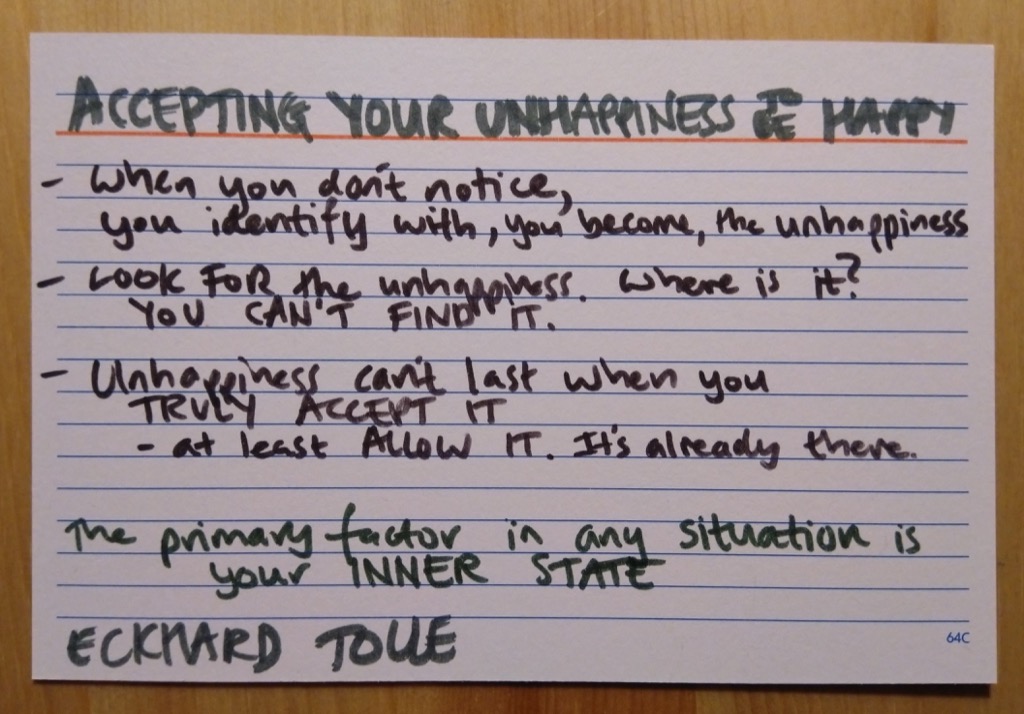 ACCEPTING YOUR UNHAPPINESS TO BE HAPPY
- When you don't notice,
you identify with, you become, the unhappiness
- LOOK FOR the unhappiness. Where is it?
YOU CAN'T FIND IT.
- Unhappiness can't last when you
TRULY ACCEPT IT
- at least ALLOW IT. It's already there.
The primary factor in any situation is
your INNER STATE
ECKHARD TOLLE
64C